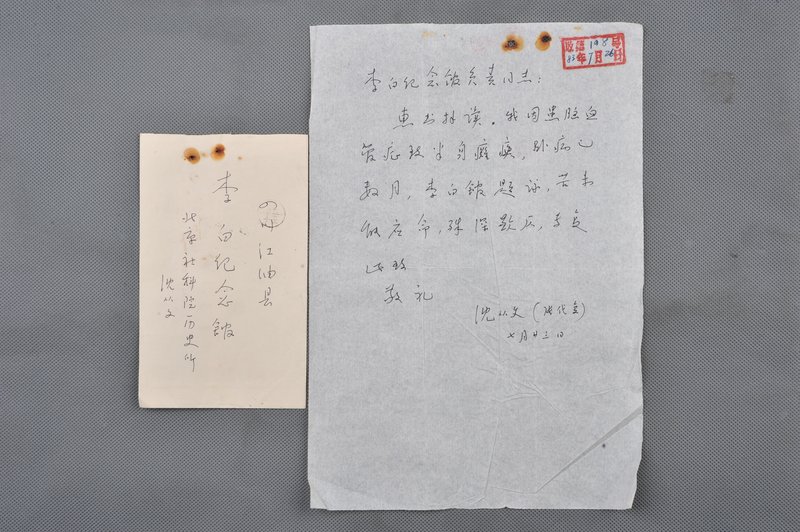 四川江油县
李白纪念馆
北京社科院历史所
沈从文
李白纪念馆负责同志：
惠书拜读。我因患脑血
管症致半身瘫痪，卧病已
数月，李白馆题词，苦未
做应命，殊深歉仄，专复
此致
敬礼
沈从文（张代笔）
七月廿三日